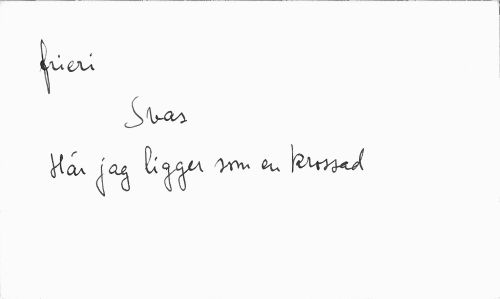 frieri
Svas
Här jag ligger som en krossad